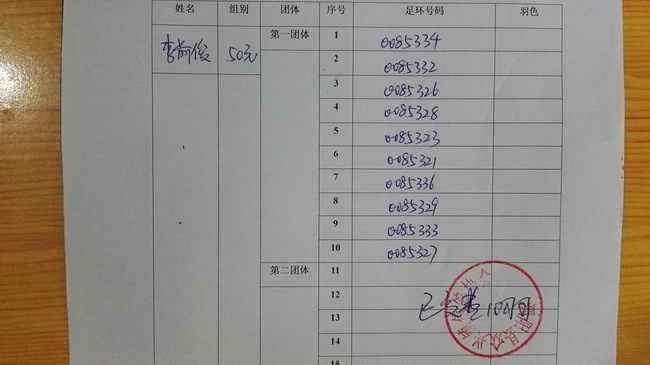 姓名 组别 团体 序号 足环号码 羽色
李前俊 50元 第一团体 1 0085334
2 0085332
3 0085326
4 0085328
5 0085323
6 0085321
7 0085336
8 0085329
9 0085333
10 0085327
第二团体 11
12
13
14
15